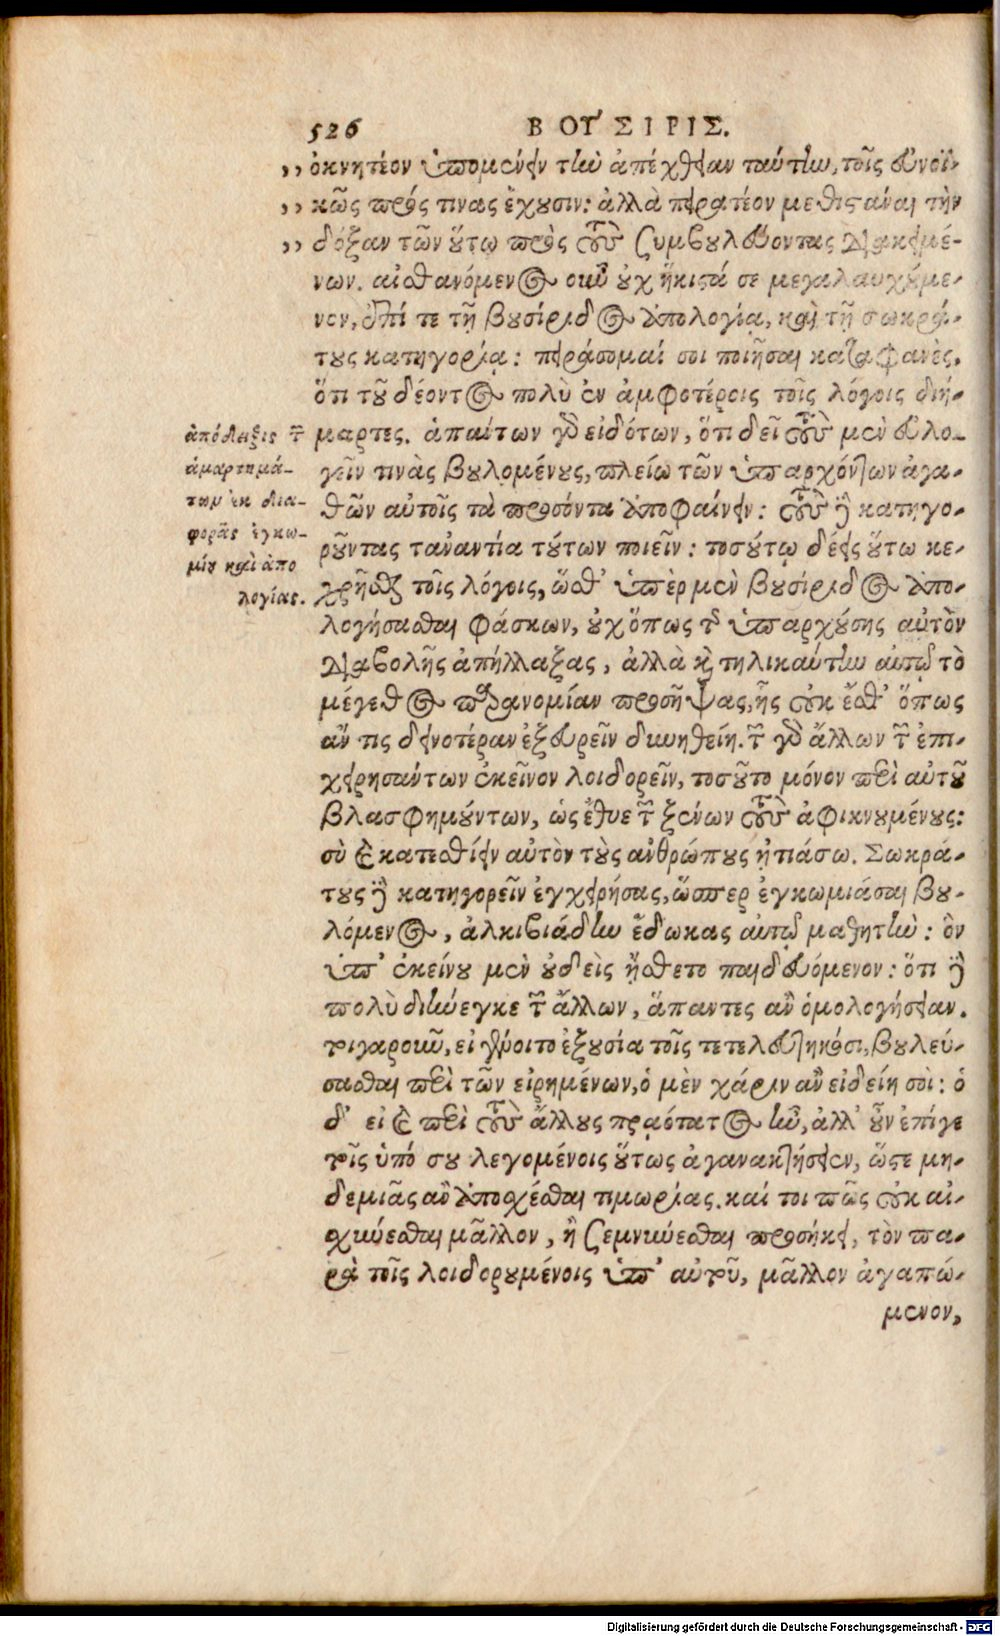 526 ΒΟΥΣΙΡΙΣ.
,, ὀκνητέον ὑπομένειν τὴν ἀπέχθειαν ταύτην, τοῖς εὐνοϊ-
,, κῶς πρός τινας ἔχουσιν: ἀλλὰ πειρατέον μεθιστάναι τὴν
,, δόξαν τῶν οὕτω πρὸς τοὺς συμβουλεύοντας διακειμέ-
νων. αἰσθανόμενος οὖν οὐχ ἥκιστά σε μεγαλαυχούμε-
νον, ἐπί τε τῇ βουσίριδος ἀπολογίᾳ, καὶ τῇ σωκρά-
τους κατηγορίᾳ: πειράσομαί σοι ποιῆσαι καταφανὲς,
ὅτι τοῦ δέοντος πολὺ ἐν ἀμφοτέροις τοῖς λόγοις διή-
μαρτες. ἁπάντων γὰρ εἰδότων, ὅτι δεῖ τοὺς μὲν εὐλο-
γεῖν τινὰς βουλομένους, πλείω τῶν ὑπαρχόντων ἀγα-
θῶν αὐτοῖς τὰ προσόντα ἀποφαίνειν: τοὺς δὲ κατηγο-
ροῦντας τἀναντία τούτων ποιεῖν: τοσούτῳ δέεις οὕτω κε-
χρῆσθαι τοῖς λόγοις, ὥσθ' ὑπὲρ μὲν βουσίριδος ἀπο-
λογήσασθαι φάσκων, οὐχ ὅπως τῆς ὑπαρχούσης αὐτὸν
διαβολῆς ἀπήλλαξας, ἀλλὰ καὶ τηλικαύτην αὐτῷ τὸ
μέγεθος παρανομίαν προσῆψας, ἧς οὐκ ἔσθ' ὅπως
ἄν τις δεινοτέραν ἐξευρεῖν δυνηθείη. τῶν γὰρ ἄλλων τῶν ἐπι-
χειρησάντων ἐκεῖνον λοιδορεῖν, τοσοῦτο μόνον περὶ αὐτοῦ
βλασφημούντων, ὡς ἔθυε τῶν ξένων τοὺς ἀφικνουμένους:
σὺ καὶ κατεσθίειν αὐτὸν τοὺς ἀνθρώπους ᾐτιάσω. Σωκρά-
τους δὲ κατηγορεῖν ἐγχειρήσας, ὥσπερ ἐγκωμιάσαι βου-
λόμενος, ἀλκιβιάδην ἔδωκας αὐτῷ μαθητὴν: ὃν
ὑπ' ἐκείνου μὲν οὐδεὶς ᾔσθετο παιδευόμενον: ὅτι δὲ
πολὺ διήνεγκε τῶν ἄλλων, ἅπαντες ἂν ὁμολογήσειαν.
τοιγαροῦν, εἰ γένοιτο ἐξουσία τοῖς τετελευτηκόσι, βουλεύ-
σασθαι περὶ τῶν εἰρημένων, ὁ μὲν χάριν ἂν εἰδείη σοι: ὁ
δ' εἰ καὶ περὶ τοὺς ἄλλους πραότατος ἦν, ἀλλ' οὖν ἐπί γε
τοῖς ὑπό σου λεγομένοις οὕτως ἀγανακτήσειεν, ὥστε μη-
δεμιᾶς ἂν ἀποσχέσθαι τιμωρίας. καί τοι πῶς οὐκ αἰ-
σχύνεσθαι μᾶλλον, ἢ σεμνύνεσθαι προσήκει, τὸν πα-
ρὰ τοῖς λοιδορουμένοις ὑπ' αὐτοῦ, μᾶλλον ἀγαπώ-
μενον,
ἀπόδειξις τῶν
ἁμαρτημά-
των ἐκ δια-
φορᾶς ἐγκω-
μίου καὶ ἀπο
λογίας.
Digitalisierung gefördert durch die Deutsche Forschungsgemeinschaft - DFG